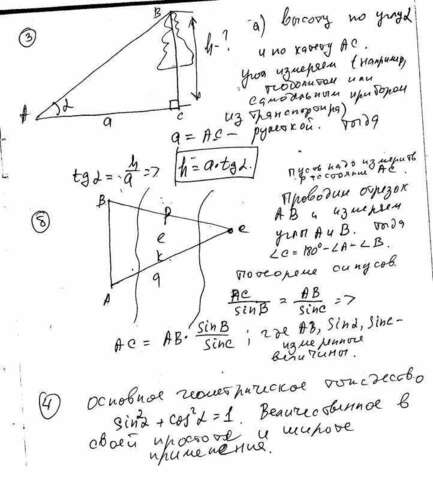 ③
B
h-?
A
α
a
C
а) высоту по углу α
и по катету AC.
Угол измеряем (например,
теодолитом или
самодельным прибором
из транспортира)
a = AC - рулеткой. Тогда
tgα = h/a => h = a·tgα.
Пусть надо измерить
расстояние AC.
Проводим отрезок
AB и измеряем
угл A и B. Тогда
∠C = 180° - ∠A - ∠B.
По теореме синусов
AC/sinB = AB/sinC =>
б
B
р
е
к
а
C
A
AC = AB · sinB/sinC ; где AB, Sinα, SinC -
измеренные
величины.
④
Основное геометрическое тождество
sin²α + cos²α = 1. Величественное в
своей простоте и широте
применения.